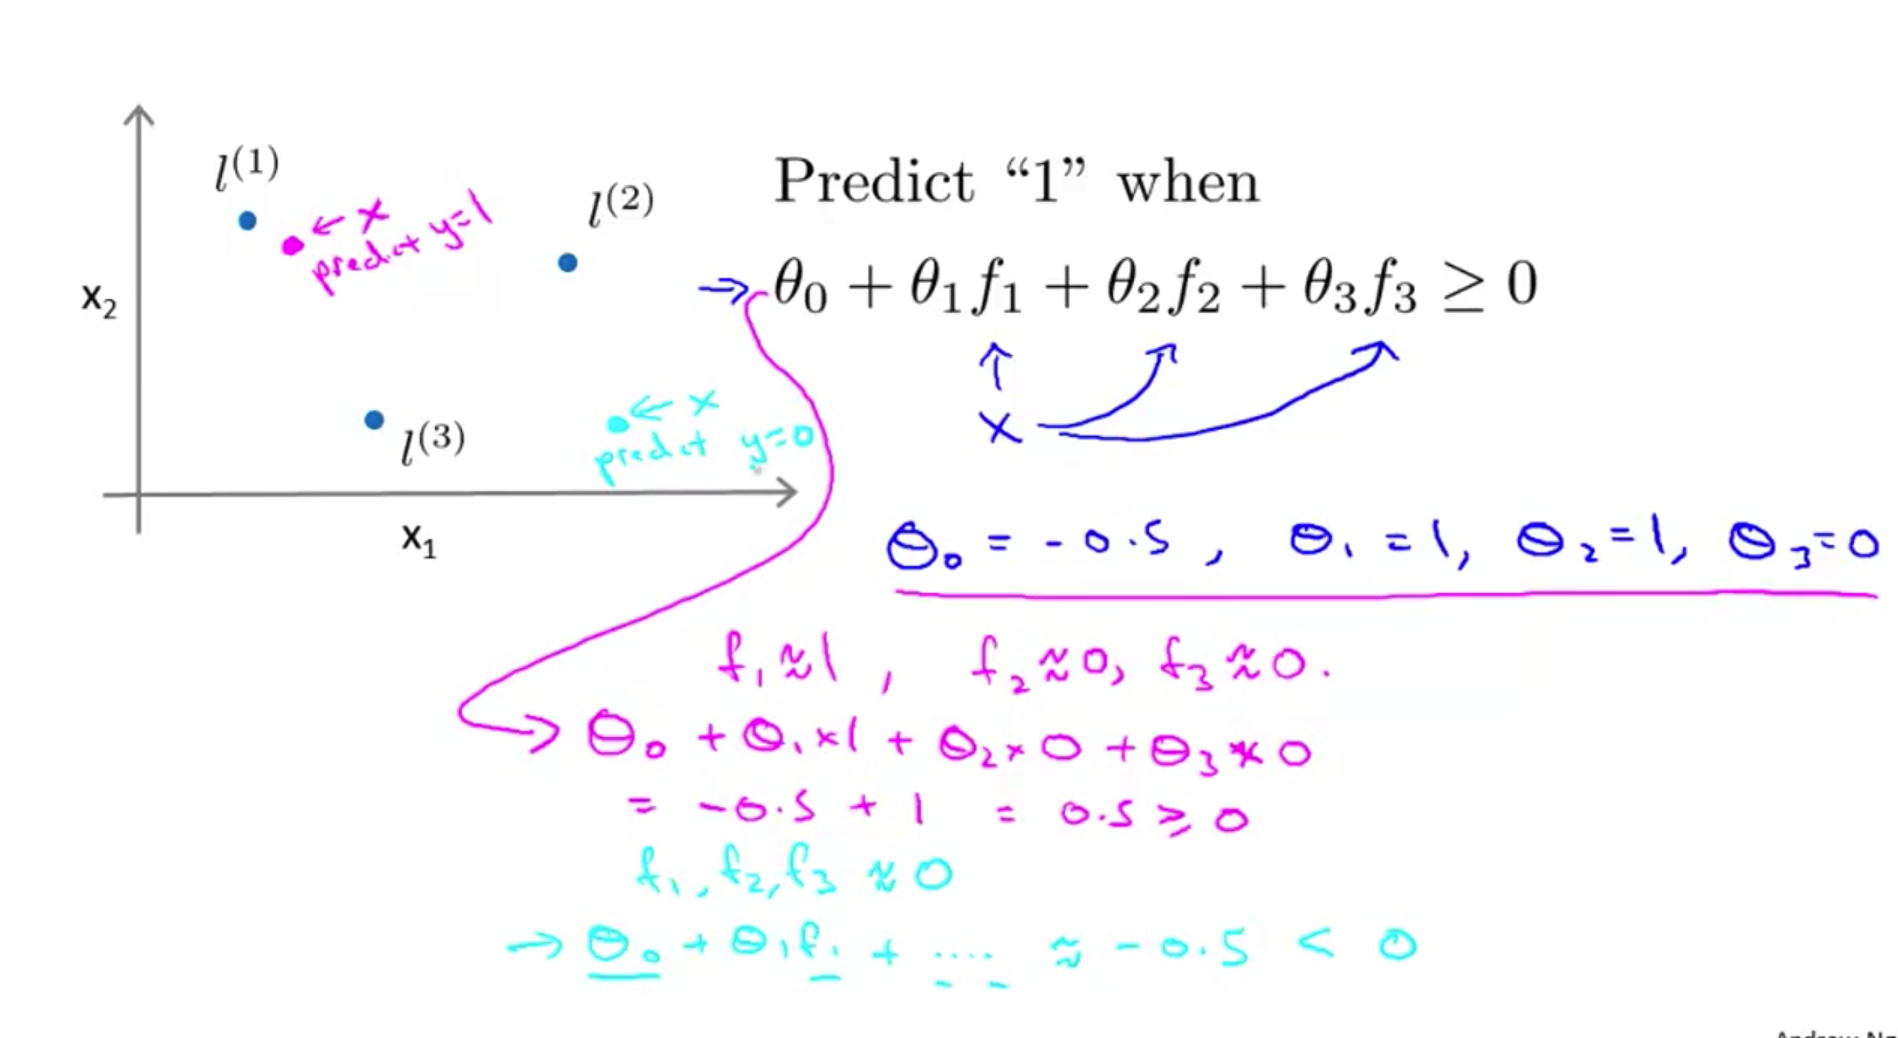 l^{(1)}
← x
predict y=1
l^{(2)}
x₂
← x
predict y=0
l^{(3)}
x₁
Predict “1” when
→ θ₀ + θ₁f₁ + θ₂f₂ + θ₃f₃ ≥ 0
↑
x
θ₀ = -0.5, θ₁ = 1, θ₂ = 1, θ₃ = 0
f₁ ≈ 1, f₂ ≈ 0, f₃ ≈ 0.
→ θ₀ + θ₁×1 + θ₂×0 + θ₃×0
= -0.5 + 1 = 0.5 ≥ 0
f₁, f₂, f₃ ≈ 0
→ θ₀ + θ₁f₁ + .... ≈ -0.5 < 0